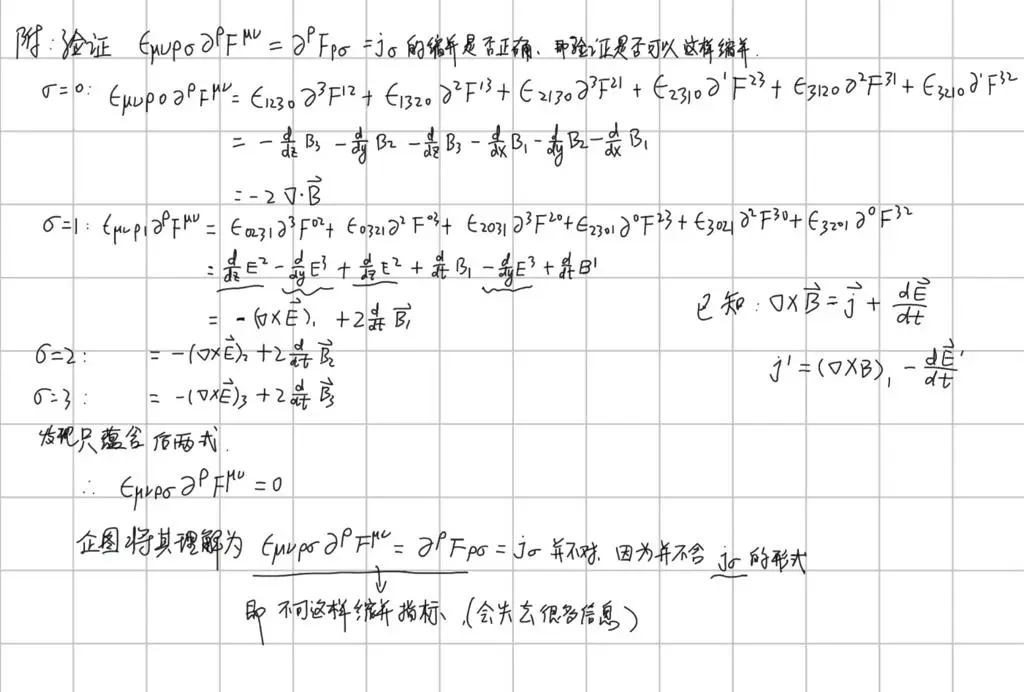 附：验证 ϵ_{μνρσ} ∂^ρ F^{μν} = ∂^ρ F_{ρσ} = j_σ 的缩并是否正确、即验证是否可以这样缩并.
σ=0: ϵ_{μνρ0} ∂^ρ F^{μν} = ϵ_{1230} ∂^3 F^{12} + ϵ_{1320} ∂^2 F^{13} + ϵ_{2130} ∂^3 F^{21} + ϵ_{2310} ∂^1 F^{23} + ϵ_{3120} ∂^2 F^{31} + ϵ_{3210} ∂^1 F^{32}
= - d/dz B_3 - d/dy B_2 - d/dz B_3 - d/dx B_1 - d/dy B_2 - d/dx B_1
= -2 ∇·B⃗
σ=1: ϵ_{μνρ1} ∂^ρ F^{μν} = ϵ_{0231} ∂^3 F^{02} + ϵ_{0321} ∂^2 F^{03} + ϵ_{2031} ∂^3 F^{20} + ϵ_{2301} ∂^0 F^{23} + ϵ_{3021} ∂^2 F^{30} + ϵ_{3201} ∂^0 F^{32}
= d/dz E^2 - d/dy E^3 + d/dz E^2 + d/dt B_1 - d/dy E^3 + d/dt B^1
= -(∇×E⃗)_1 + 2 d/dt B⃗_1
已知: ∇×B⃗ = j⃗ + dE⃗/dt
σ=2: = -(∇×E⃗)_2 + 2 d/dt B⃗_2
j^1 = (∇×B)_1 - dE⃗^1/dt
σ=3: = -(∇×E⃗)_3 + 2 d/dt B⃗_3
发现只蕴含后两式.
∴ ϵ_{μνρσ} ∂^ρ F^{μν} = 0
企图将其理解为 ϵ_{μνρσ} ∂^ρ F^{μν} = ∂^ρ F_{ρσ} = j_σ 并不对. 因为并不含 j_σ 的形式
即 不可这样缩并指标、(会失去很多信息)